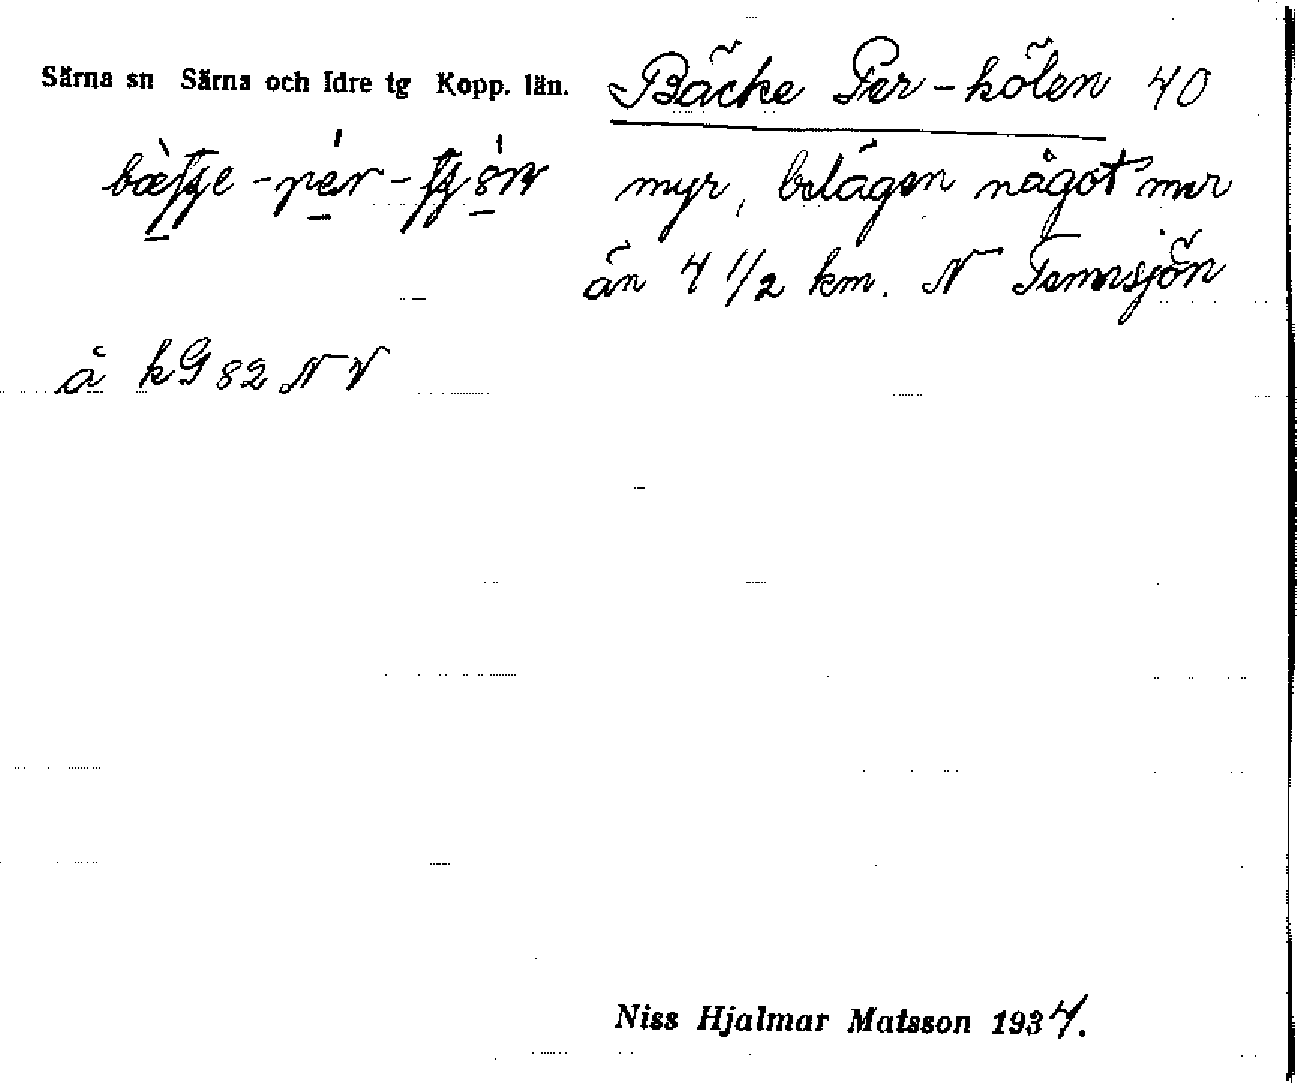 Särna sn Särna och Idre tg Kopp. län. Bäcke Per-kölen 40
myr, belägen något mer
än 4 1/2 km. N Tennsjön
å kG 82 NV
Niss Hjalmar Matsson 1934.